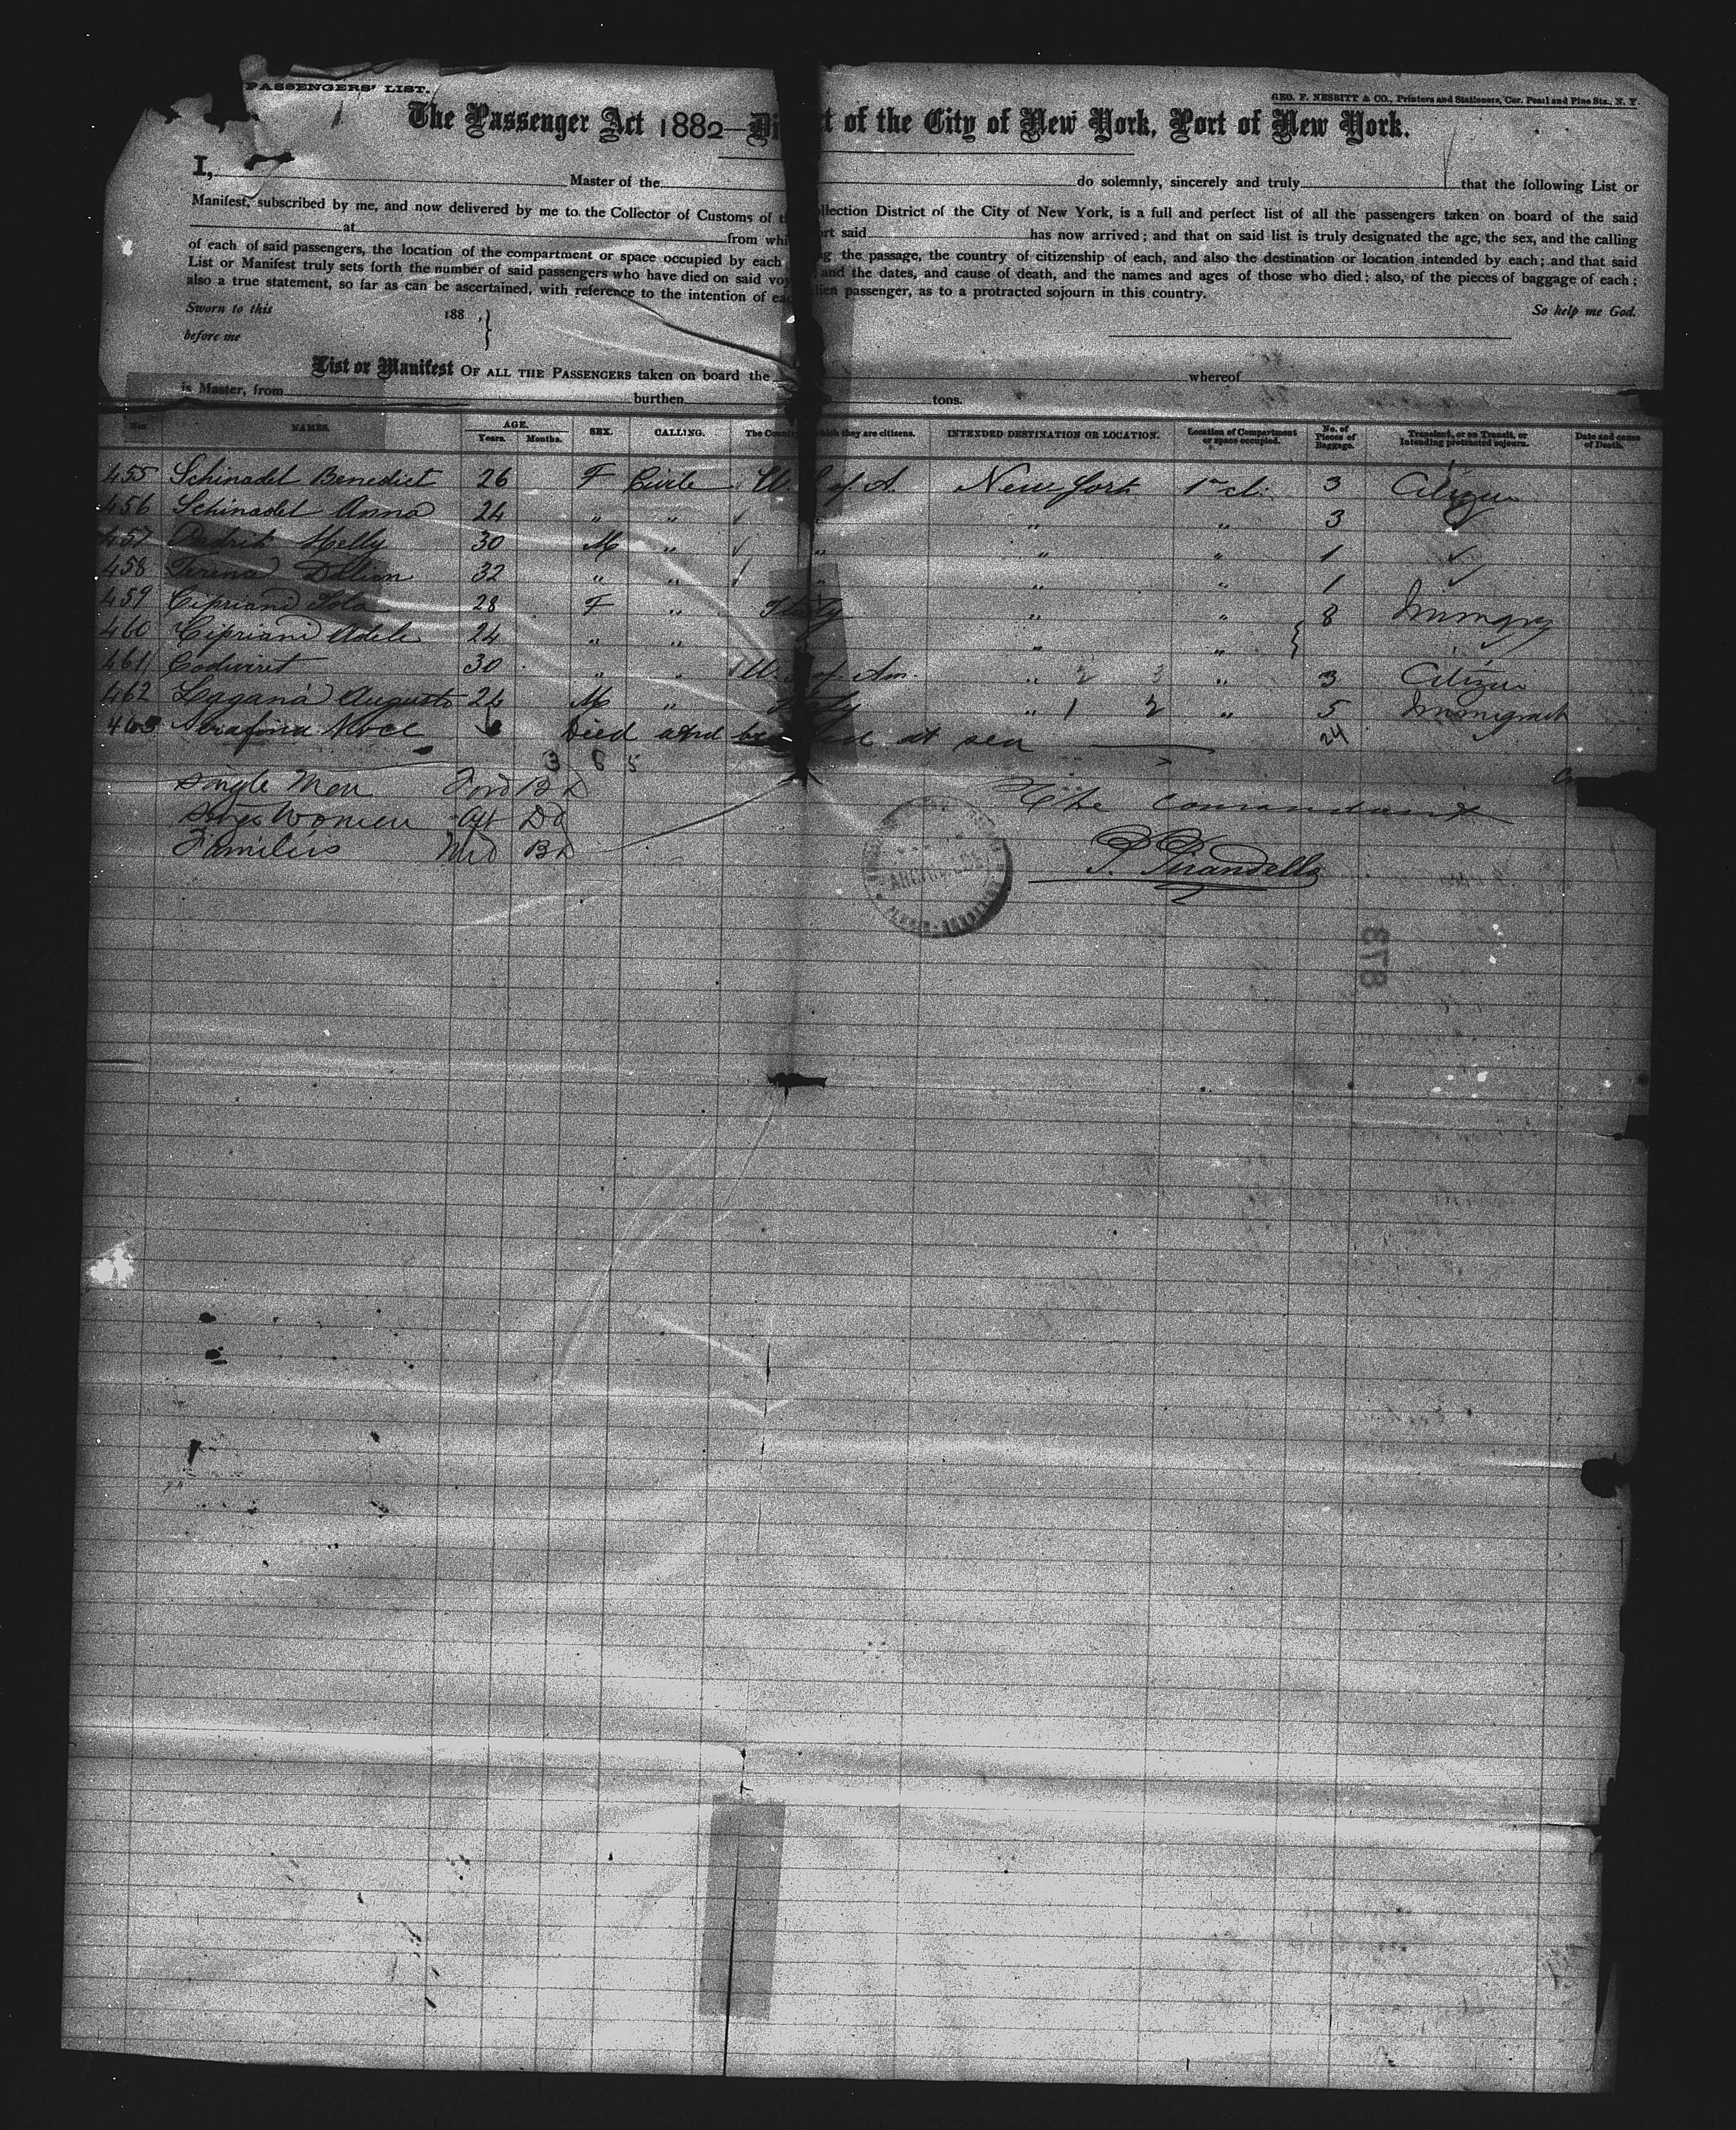 PASSENGERS' LIST.
GEO. F. NESBITT & CO., Printers and Stationers, Cor. Pearl and Pine Sts., N. Y.
The Passenger Act 1882—Di t of the City of New York, Port of New York.
I, Master of the do solemnly, sincerely and truly that the following List or
Manifest, subscribed by me, and now delivered by me to the Collector of Customs of t llection District of the City of New York, is a full and perfect list of all the passengers taken on board of the said
at from whi rt said has now arrived; and that on said list is truly designated the age, the sex, and the calling
of each of said passengers, the location of the compartment or space occupied by each g the passage, the country of citizenship of each, and also the destination or location intended by each; and that said
List or Manifest truly sets forth the number of said passengers who have died on said voy and the dates, and cause of death, and the names and ages of those who died; also, of the pieces of baggage of each;
also a true statement, so far as can be ascertained, with reference to the intention of eac lien passenger, as to a protracted sojourn in this country.
Sworn to this 188 , } So help me God.
before me
List or Manifest OF ALL THE PASSENGERS taken on board the whereof
is Master, from burthen tons.
Nos. NAMES. AGE. Years. Months. SEX. CALLING. The Countr which they are citizens. INTENDED DESTINATION OR LOCATION. Location of Compartment or space occupied. No. of Pieces of Baggage. Transient, or in Transit, or Intending protracted sojourn. Date and cause of Death.
455 Schinadel Benedict 26 F Civile U. S of A. New York 1a cl. 3 Citizen
456 Schinadel Anna 24 " " " " " 3
457 Melly 30 M " " " " 1
458 Dillion 32 " " " " " 1
459 Cipriani 28 F " Italy " " 8
460 Cipriani Adele 24 " " " "
461 30 " " U. of Am. " " 3 Citizen
462 Lagana Augusto 26 M " Italy " 1 2 " 5 Immigrant
463 Died and at sea 24
3 6 5
Single Men Ford B D
Women Aft DD
Families Mid B D
The Comandant
P. Pirandello
878